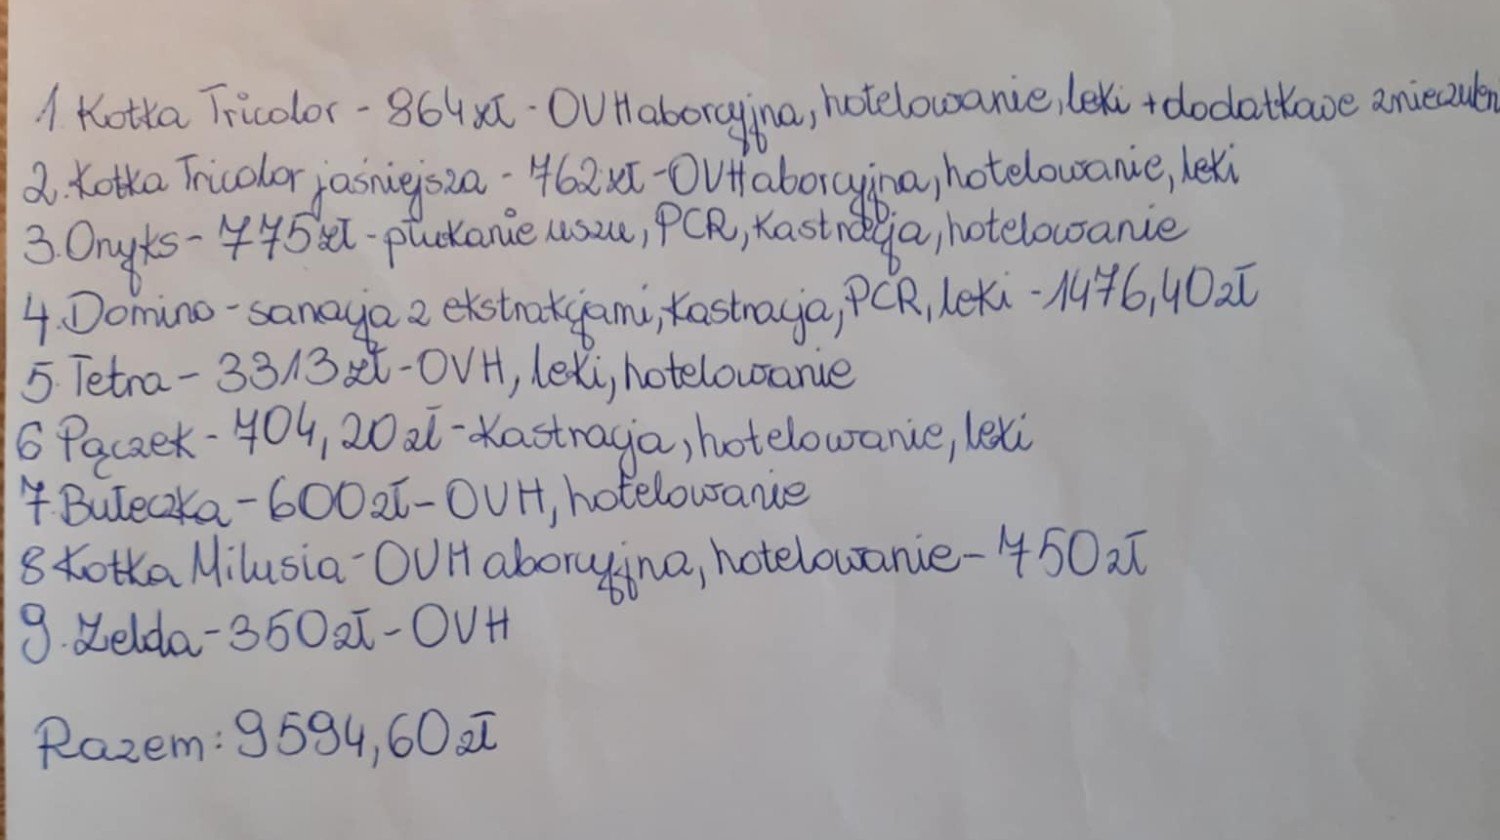 1. Kotka Tricolor - 864zł - OVH aborcyjna, hotelowanie, leki + dodatkowe znieczulen
2. Kotka Tricolor jaśniejsza - 762zł - OVH aborcyjna, hotelowanie, leki
3. Onyks - 775zł - płukanie uszu, PCR, kastracja, hotelowanie
4. Domino - sanacja z ekstrakcjami, kastracja, PCR, leki - 1476,40zł
5. Tetra - 3313zł - OVH, leki, hotelowanie
6 Pączek - 704,20zł - kastracja, hotelowanie, leki
7. Bułeczka - 600zł - OVH, hotelowanie
8 Kotka Milusia - OVH aborcyjna, hotelowanie - 750zł
9. Zelda - 350zł - OVH
Razem: 9594,60zł